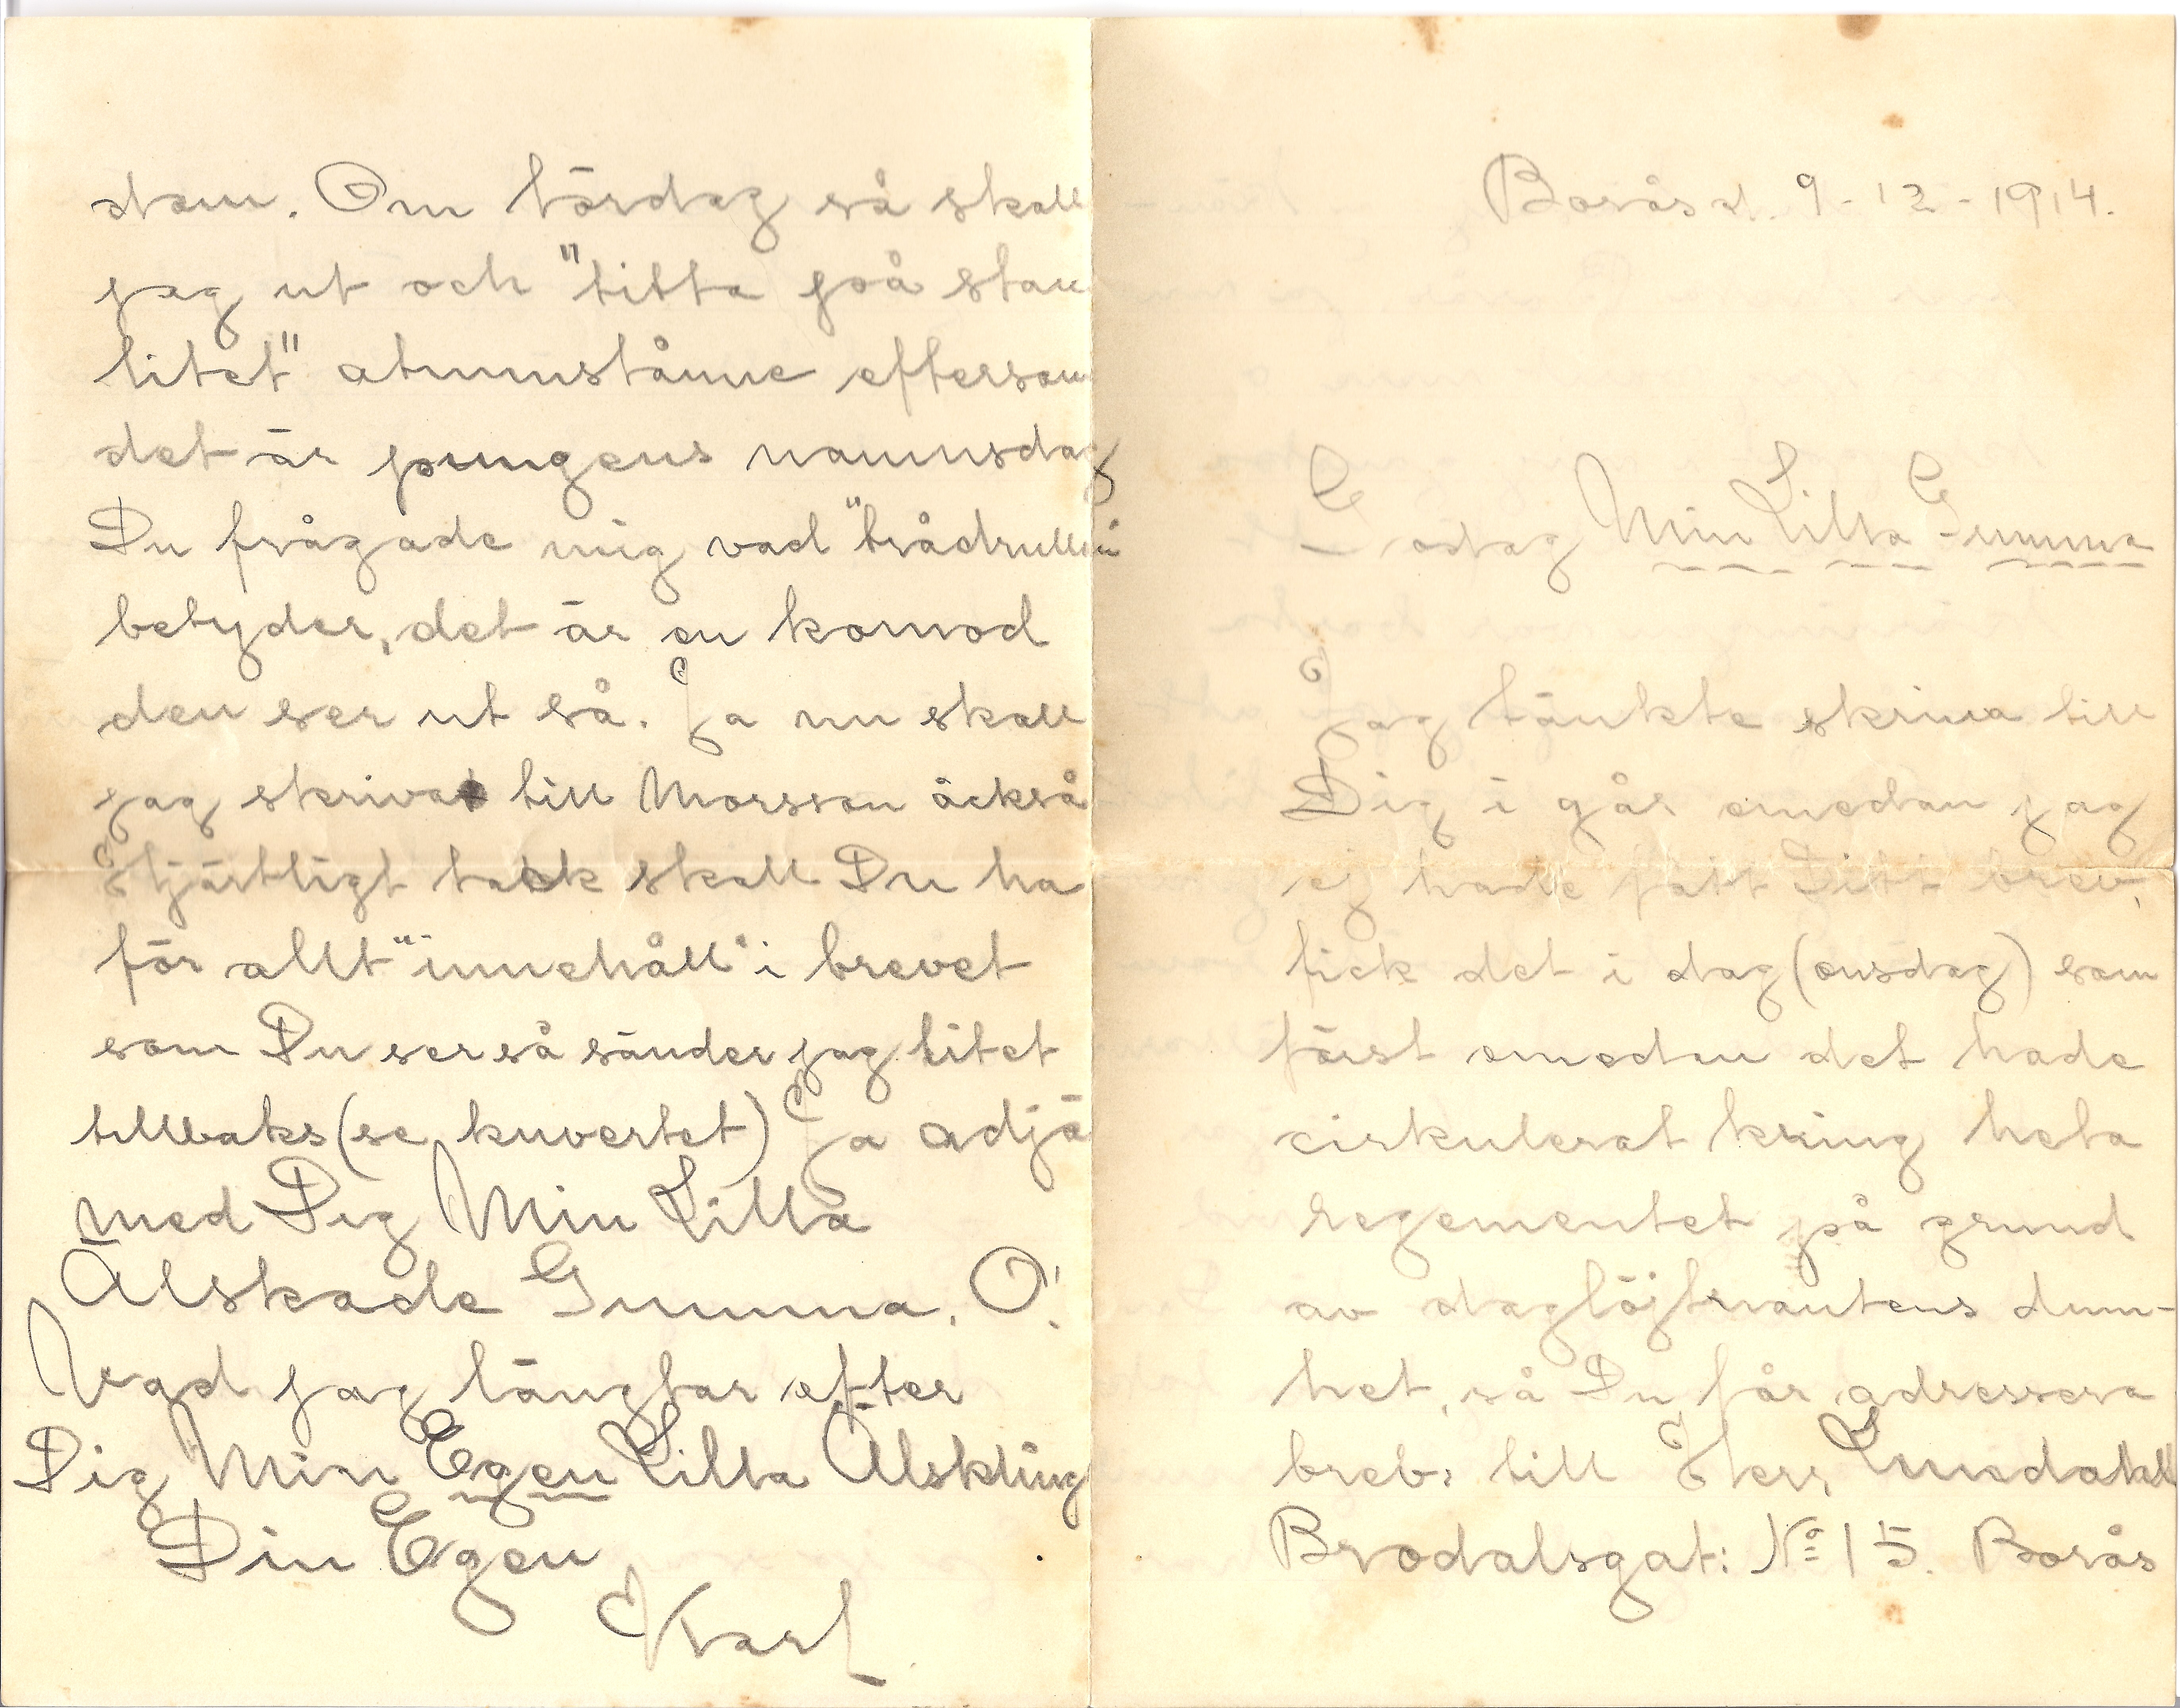 Borås d. 9-12-1914.
Godag Min Lilla Gumma
Jag tänkte skriva till
Dig i går emedan jag
ej hade fått Ditt brev,
fick det i dag (onsdag) som
först emedan det hade
cirkulerat kring hela
regementet på grund
av daglöjtnantens dum-
het, så Du får adressera
brev: till Herr Lundahl
Brodalsgat: No 15. Borås
dem. Om lördag så skall
jag ut och "titta på stan
litet" åtminstånne eftersom
det är pungens namnsdag
Du frågade mig vad "trådrullen
betyder, det är en komod
den ser ut så. Ja nu skall
jag skriva till Morsson åckså
Hjärtligt tack skall Du ha
för allt "innehåll" i brevet
som Du ser så sänder jag litet
tillbaks (se kuvertet) Ja adjö
med Dig Min Lilla
Älskade Gumma. O!
Vad jag längtar efter
Dig Min Egen Lilla Älskling
Din Egen
Karl